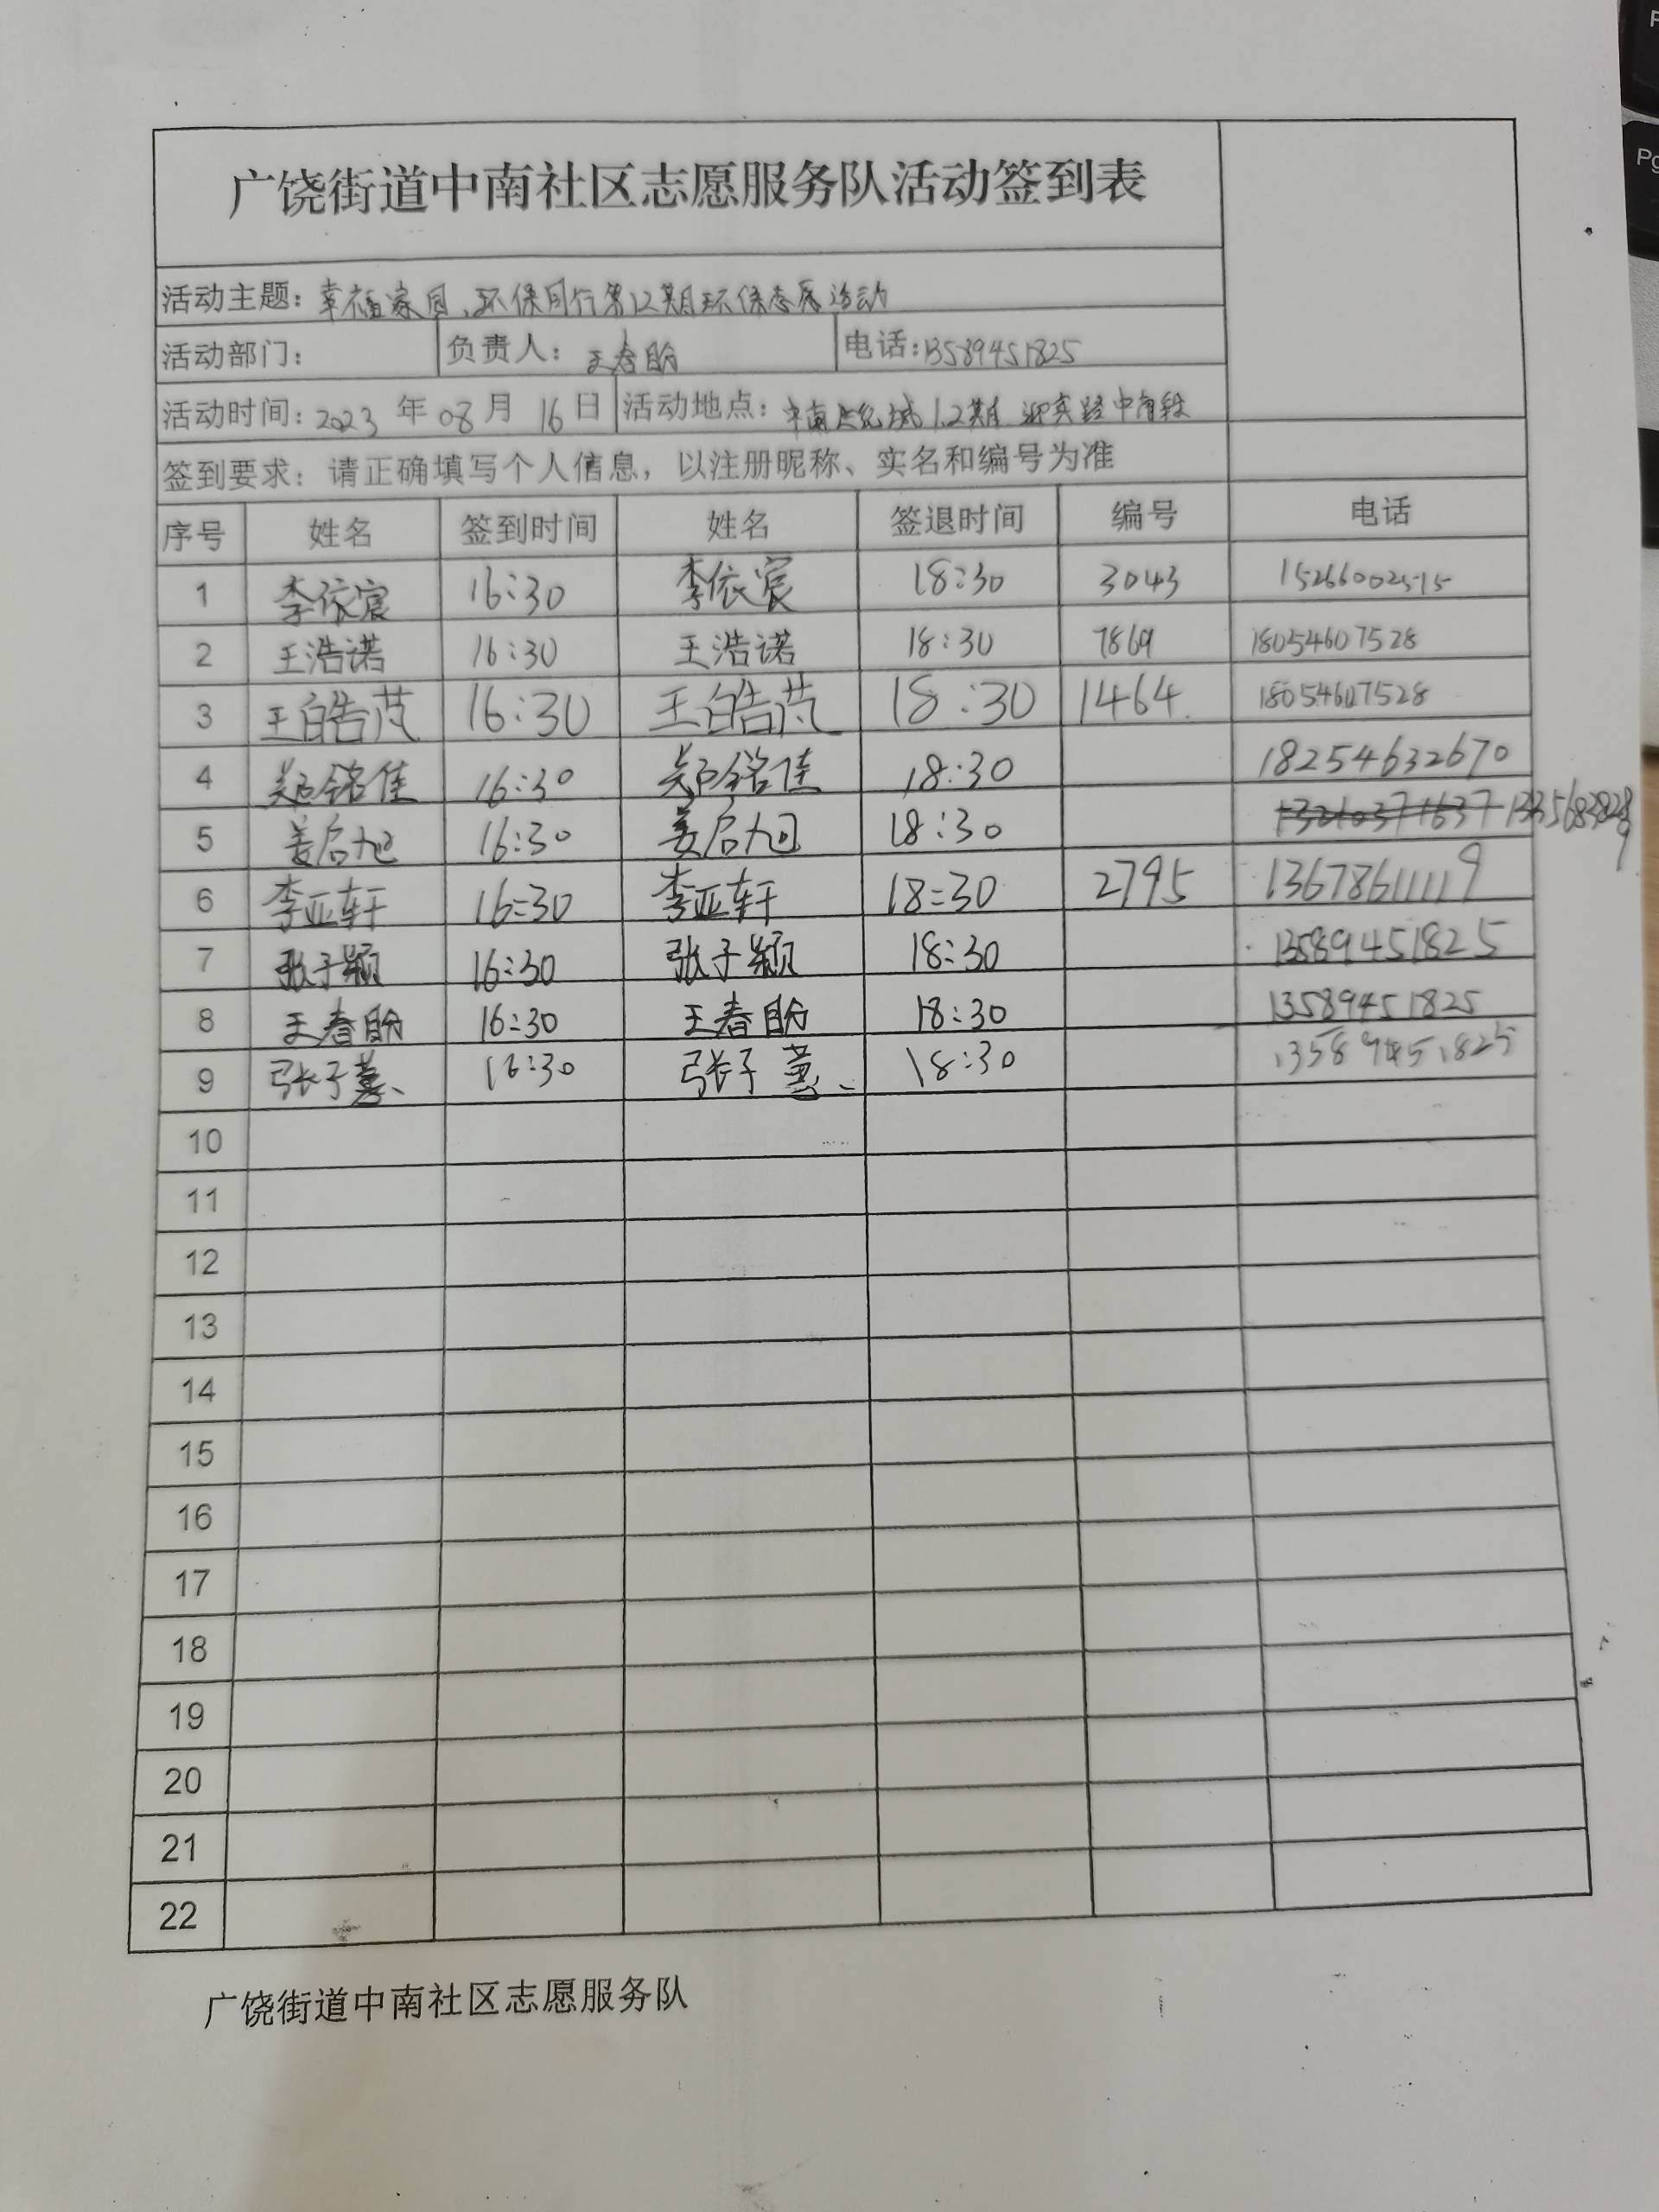 广饶街道中南社区志愿服务队活动签到表
活动主题：幸福家园、环保同行第12期环保志愿活动
活动部门： 负责人：王春盼 电话：13589451825
活动时间：2023 年 08 月 16 日 活动地点：中南世纪城1.2期 迎宾路中南段
签到要求：请正确填写个人信息，以注册昵称、实名和编号为准
序号 姓名 签到时间 姓名 签退时间 编号 电话
1 李依宸 16:30 李依宸 18:30 3043 15266002515
2 王浩诺 16:30 王浩诺 18:30 7869 18054607528
3 王皓芃 16:30 王皓芃 18:30 1464 18054607528
4 郑铭佳 16:30 郑铭佳 18:30 18254632670
5 姜启旭 16:30 姜启旭 18:30
6 李亚轩 16:30 李亚轩 18:30 2795 13678611119
7 张子颖 16:30 张子颖 18:30 13589451825
8 王春盼 16:30 王春盼 18:30 13589451825
9 张子萱 16:30 张子萱 18:30 13589451825
10
11
12
13
14
15
16
17
18
19
20
21
22
广饶街道中南社区志愿服务队